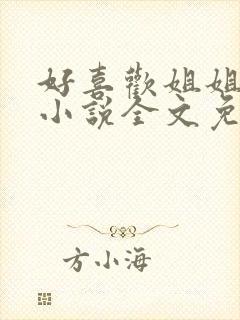 好喜歡姐姐
小說全文免
方小海